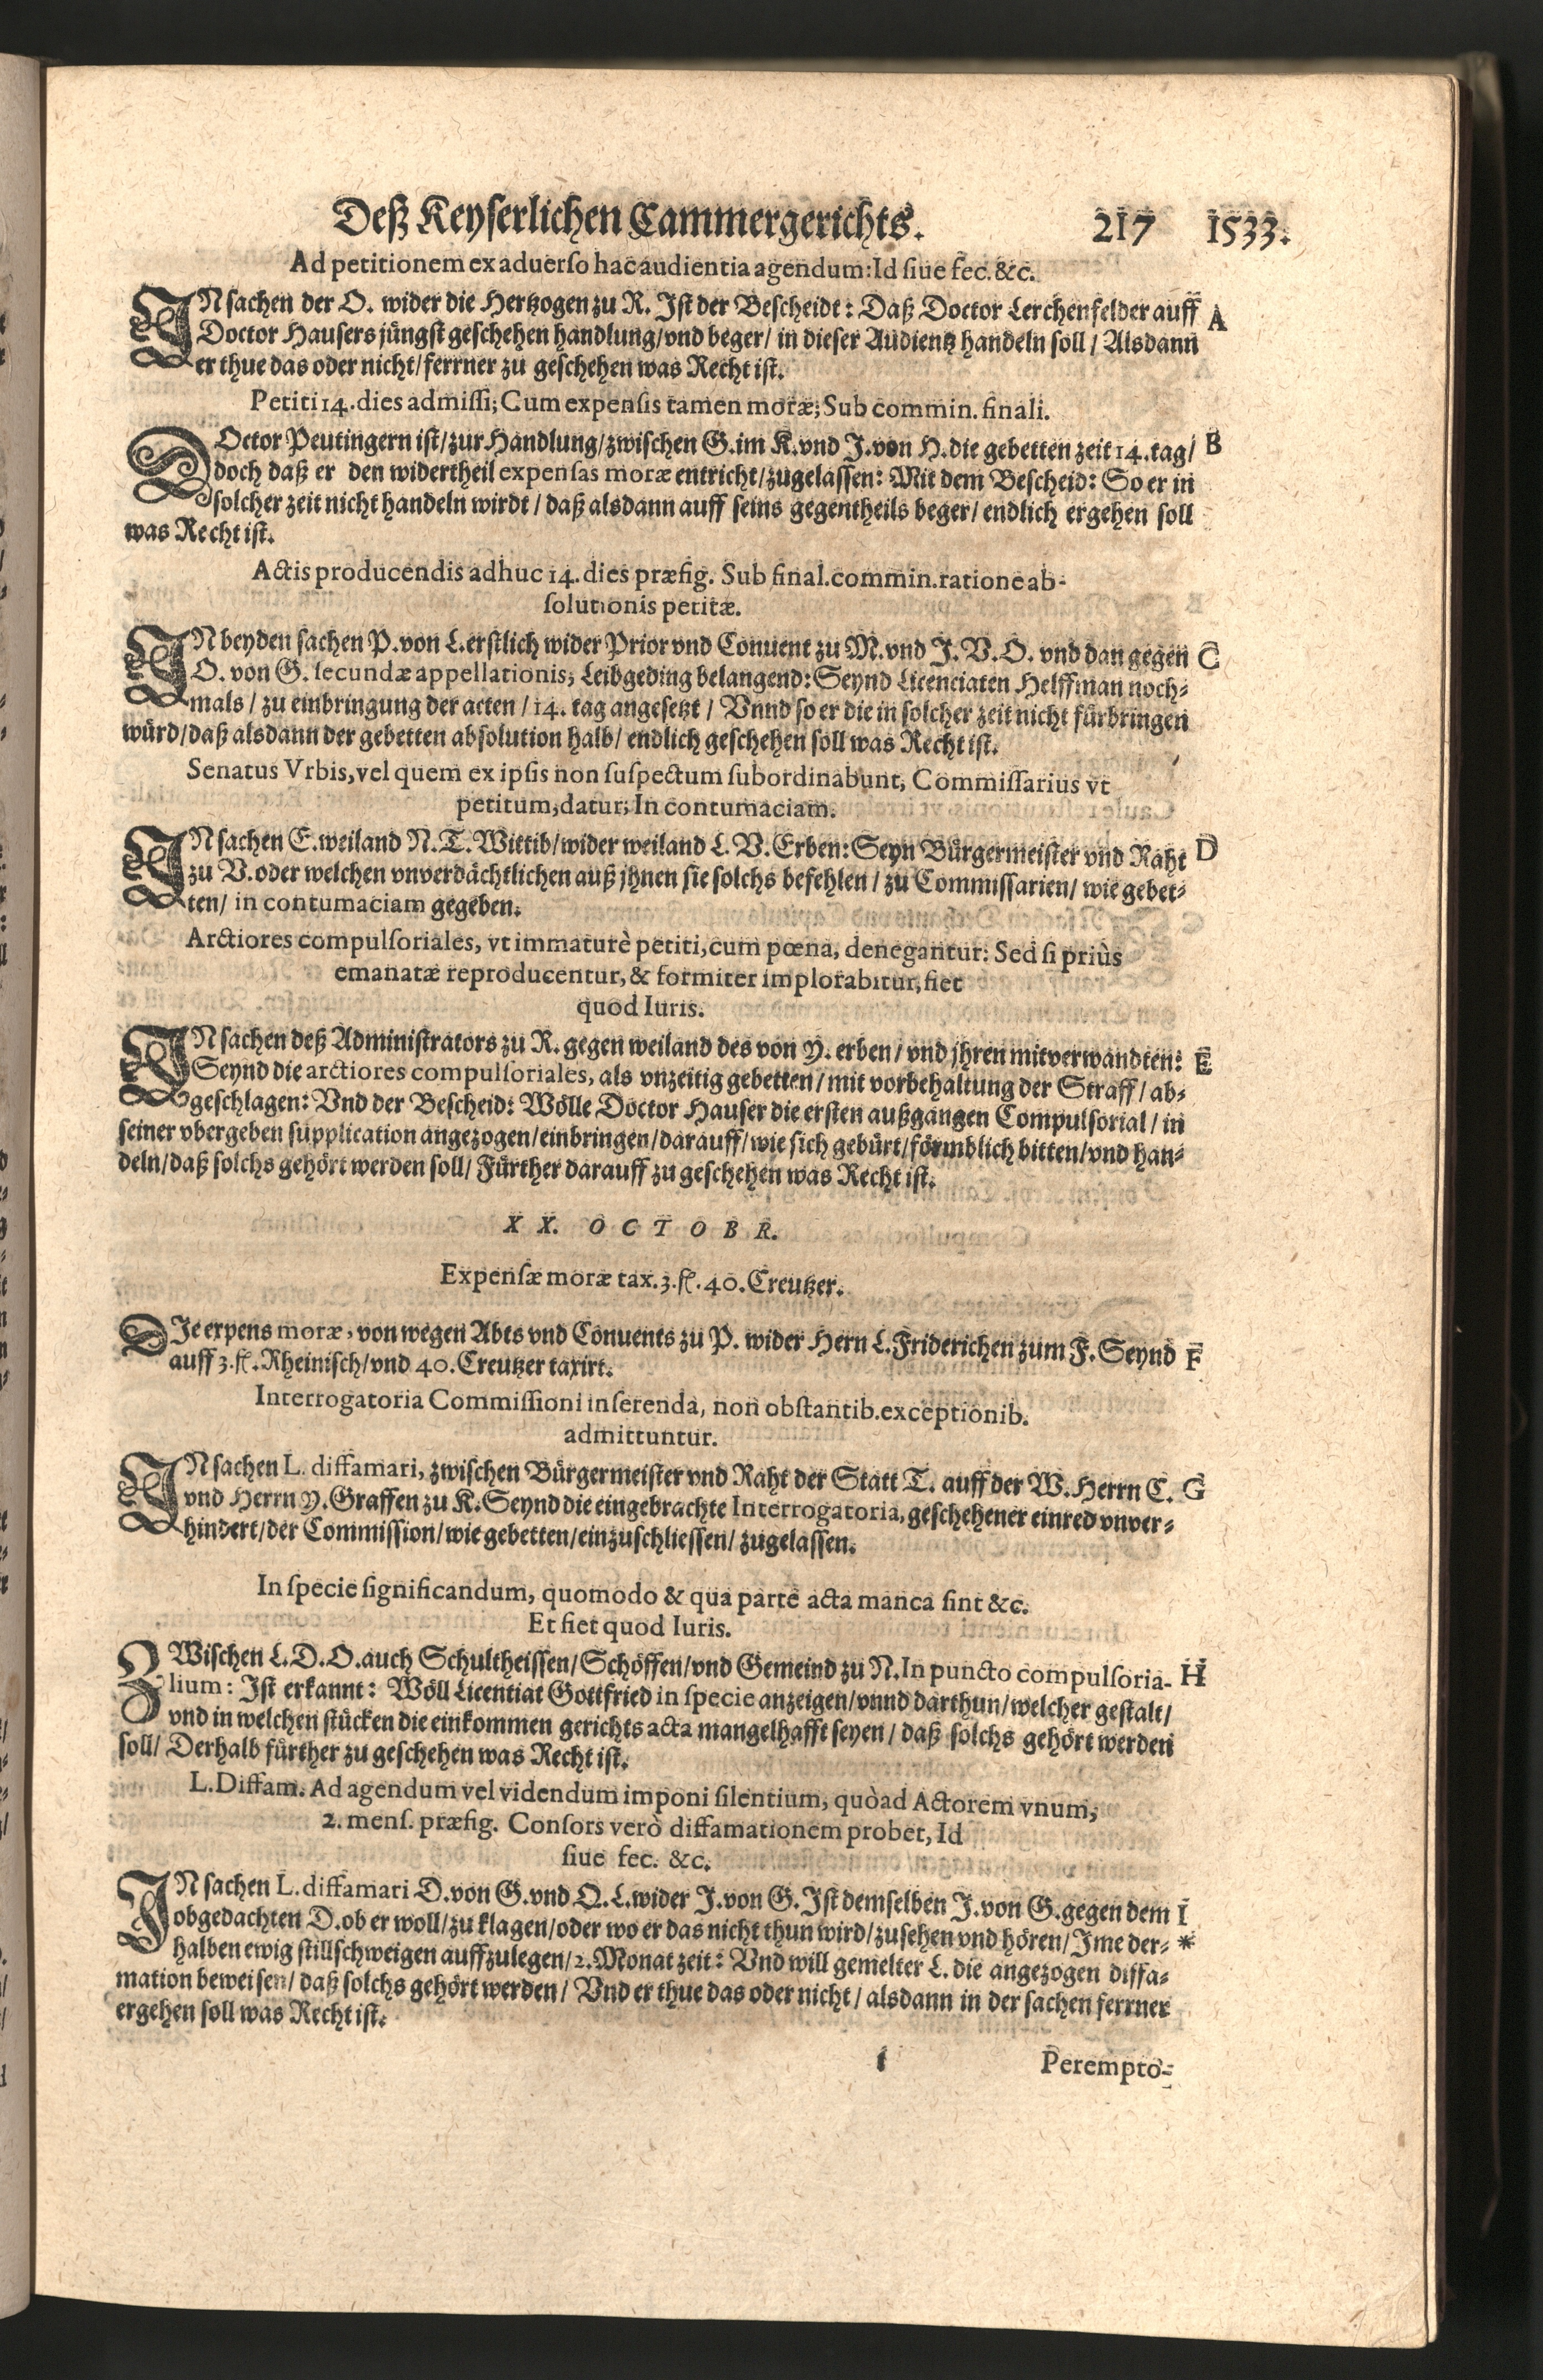 Deß Keyserlichen Cammergerichts. 217 1533.
Ad petitionem ex aduerso hac audientia agendum: Id siue sec. &c.
IN sachen der O. wider die Hertzogen zu R. Ist der Bescheidt: Daß Doctor Lerchenfelder auff A
Doctor Hausers jüngst geschehen handlung/vnd beger/ in dieser Audientz handeln soll/ Alsdann
er thue das oder nicht/ferrner zu geschehen was Recht ist.
Petiti 14. dies admissi; Cum expensis tamen moræ; Sub commin. finali.
DOctor Peutingern ist/zur Handlung/zwischen G. im K. vnd J. von H. die gebetten zeit 14. tag/ B
doch daß er den widertheil expensas moræ entricht/zugelassen: Mit dem Bescheid: So er in
solcher zeit nicht handeln wirdt/ daß alsdann auff seins gegentheils beger/ endlich ergehen soll
was Recht ist.
Actis producendis adhuc 14. dies præfig. Sub final. commin. ratione ab-
solutionis petitæ.
IN beyden sachen P. von L. erstlich wider Prior vnd Conuent zu M. vnd J. V. O. vnd dan gegen C
O. von G. secundæ appellationis; Leibgeding belangend: Seynd Licenciaten Helffman noch-
mals/ zu einbringung der acten/ 14. tag angesetzt/ Vnnd so er die in solcher zeit nicht fürbringen
würd/daß alsdann der gebetten absolution halb/ endlich geschehen soll was Recht ist.
Senatus Vrbis, vel quem ex ipsis non suspectum subordinabunt, Commissarius vt
petitum, datur; In contumaciam.
IN sachen E. weiland N. T. Wittib/wider weiland L. V. Erben: Seyn Bürgermeister vnd Raht D
zu V. oder welchen vnverdächtlichen auß jhnen sie solchs befehlen/ zu Commissarien/ wie gebet-
ten/ in contumaciam gegeben.
Arctiores compulsoriales, vt immaturè petiti, cum pœna, denegantur: Sed si priùs
emanatæ reproducentur, & formiter implorabitur, fiet
quod Iuris.
IN sachen deß Administrators zu R. gegen weiland des von Y. erben/ vnd jhren mitverwandten: E
Seynd die arctiores compulsoriales, als vnzeitig gebetten/ mit vorbehaltung der Straff/ ab-
geschlagen: Vnd der Bescheid: Wölle Doctor Hauser die ersten außgangen Compulsorial/ in
seiner vbergeben supplication angezogen/einbringen/darauff/wie sich gebürt/förmblich bitten/vnd han-
deln/daß solchs gehört werden soll/ Fürther darauff zu geschehen was Recht ist.
XX. OCTOBR.
Expensæ moræ tax. 3. fl. 40. Creutzer.
DIe expens moræ, von wegen Abts vnd Conuents zu P. wider Hern L. Friderichen zum F. Seynd F
auff 3. fl. Rheinisch/vnd 40. Creutzer taxirt.
Interrogatoria Commissioni inserenda, non obstantib. exceptionib.
admittuntur.
IN sachen L. diffamari, zwischen Bürgermeister vnd Raht der Statt T. auff der W. Herrn C. G
vnd Herrn Y. Graffen zu K. Seynd die eingebrachte Interrogatoria, geschehener einred vnver-
hindert/der Commission/wie gebetten/einzuschliessen/ zugelassen.
In specie significandum, quomodo & qua parte acta manca sint &c.
Et fiet quod Iuris.
ZWischen L. D. O. auch Schultheissen/Schöffen/vnd Gemeind zu N. In puncto compulsoria- H
lium: Ist erkannt: Wöll Licentiat Gottfried in specie anzeigen/vnnd darthun/welcher gestalt/
vnd in welchen stücken die einkommen gerichts acta mangelhafft seyen/ daß solchs gehört werden
soll/ Derhalb fürther zu geschehen was Recht ist.
L. Diffam. Ad agendum vel videndum imponi silentium, quòad Actorem vnum,
2. mens. præfig. Consors verò diffamationem probet, Id
siue sec. &c.
IN sachen L. diffamari D. von G. vnd Q. L. wider J. von G. Ist demselben J. von G. gegen dem I
obgedachten D. ob er woll/zu klagen/oder wo er das nicht thun wird/zusehen vnd hören/ Ime der- *
halben ewig stillschweigen auffzulegen/2. Monat zeit: Vnd will gemelter L. die angezogen diffa-
mation beweisen/ daß solchs gehört werden/ Vnd er thue das oder nicht/ alsdann in der sachen ferrner
ergehen soll was Recht ist.
Perempto-